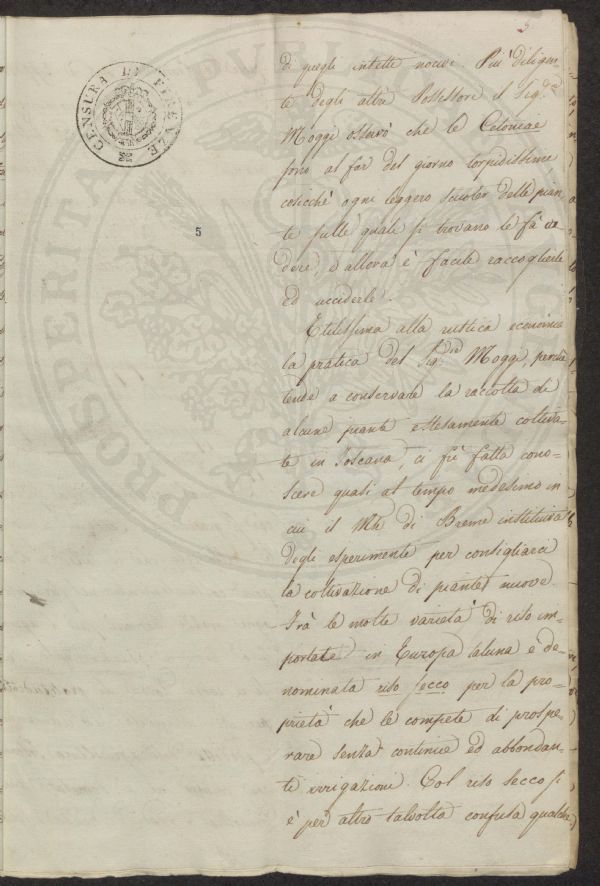 5
CENSURA DI FIRENZE
5
PROSPERITA PUBBLICA
di quegli insetti nocivi. Piú diligen-
te degli altri Possessore il Sig.re
Moggi osservò che le Cetoniae
sono al far del giorno torpidissime
cosicchè ogni leggero scuoter delle pian-
te sulle quali si trovano le fà ca-
dere, e allora è facile raccoglierle
ed ucciderle.
Utilissima alla rustica economia
la pratica del Sig.re Moggi, perchè
tende a conservare la raccolta di
alcune piante estesamente coltiva-
te in Toscana, ci fù fatta cono-
scere quasi al tempo medesimo in
cui il Mse di Breme instituiva
degli esperimenti per consigliarci
la coltivazione di piante nuove.
Trà le molte varietà di riso im-
portate in Europa taluna è de-
nominata riso secco per la pro-
prietà che le compete di prospe-
rare senza continue ed abbondan-
ti irrigazioni. Col riso secco si
è per altro talvolta confusa qualche